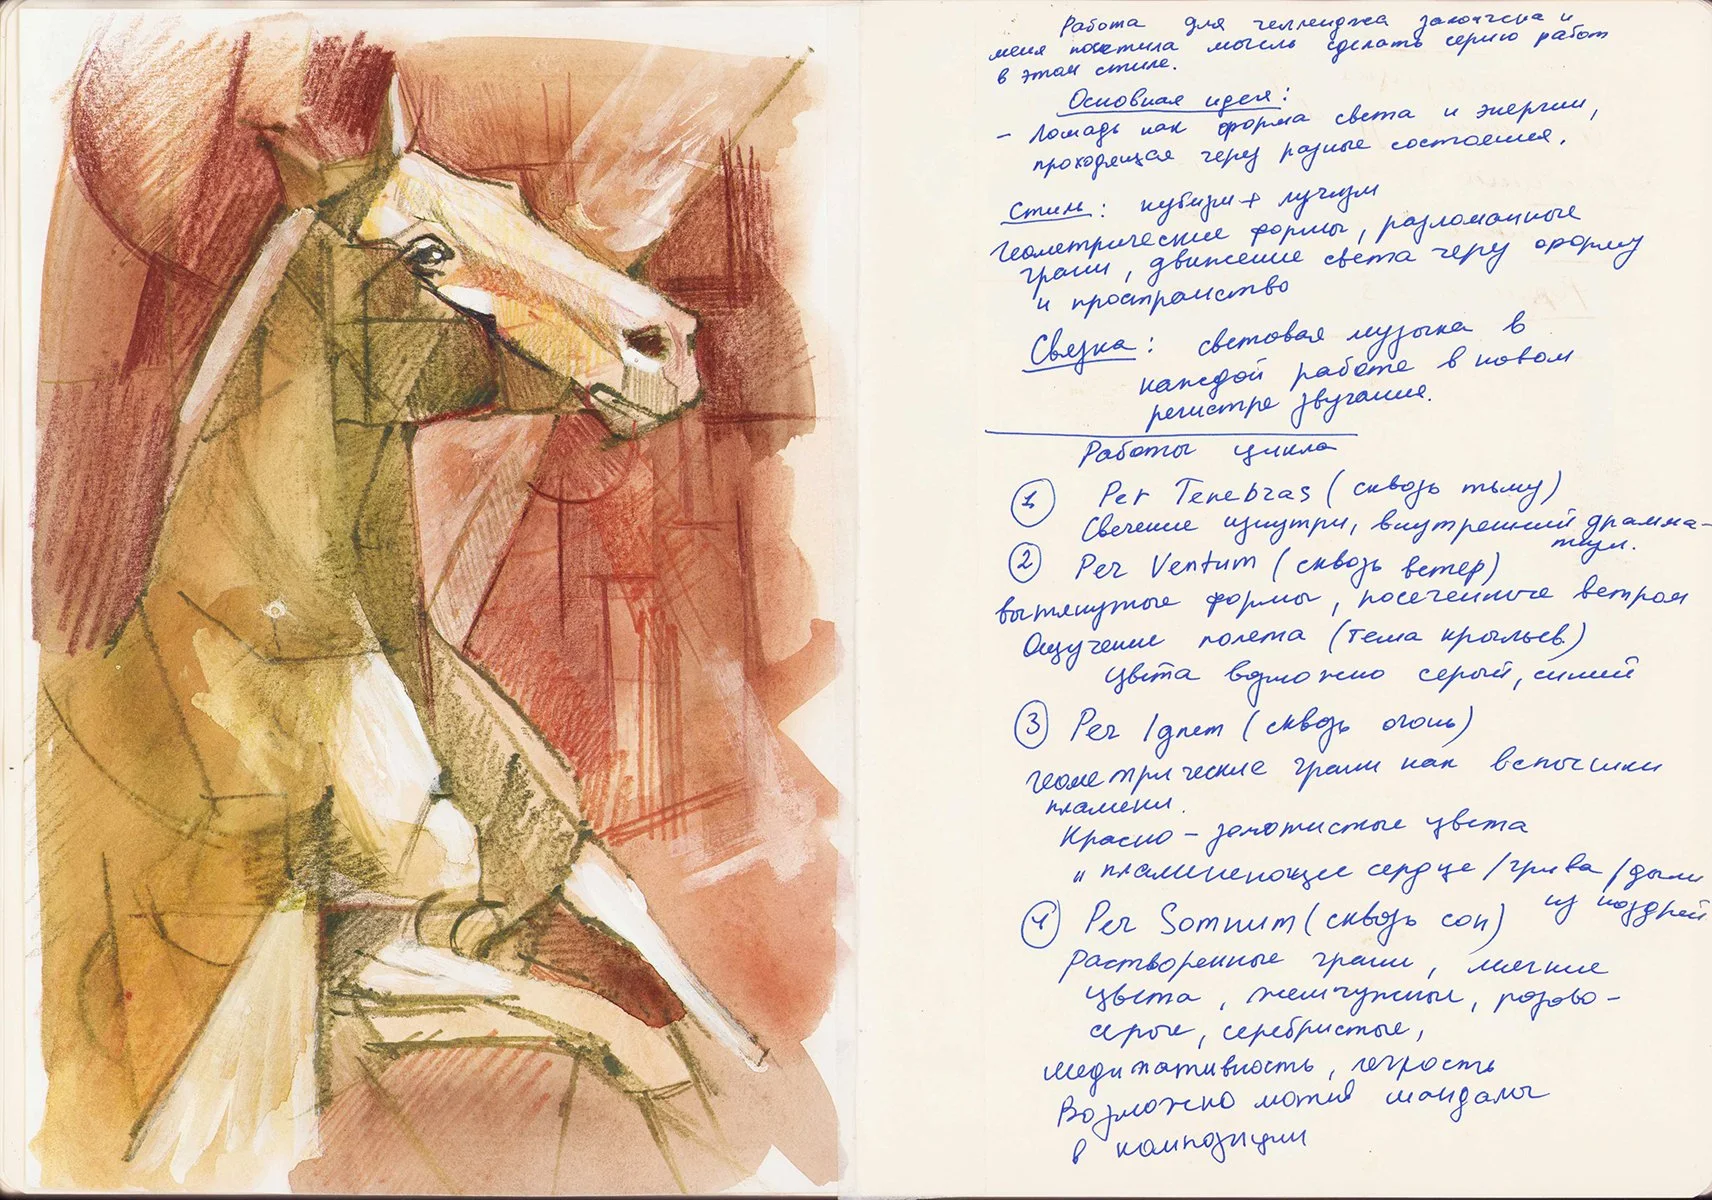 Работа для челленджа закончена и
меня посетила мысль сделать серию работ
в этом стиле.
Основная идея:
- Лошадь как форма света и энергии,
проходящая через разные состояния.
Стиль: кубизм + лучизм
Геометрические формы, разломанные
грани, движение света через форму
и пространство
Связка: световая музыка в
каждой работе в новом
регистре звучания.
Работы цикла
1 Per Tenebras (сквозь тьму)
Свечение изнутри, внутренний драмма-
тизм.
2 Per Ventum (сквозь ветер)
вытянутые формы, посеченные ветром
Ощущение полета (тема крыльев)
Цвета возможно серый, синий
3 Per Ignem (сквозь огонь)
геометрические грани как вспышки
пламени.
Красно-золотистые цвета
пламенеющее сердце / грива / дым
из ноздрей
4 Per Somnum (сквозь сон)
Растворенные грани, мягкие
цвета, жемчужные, розово-
серые, серебристые,
медитативность, легкость
Возможно мотив мандалы
в композиции